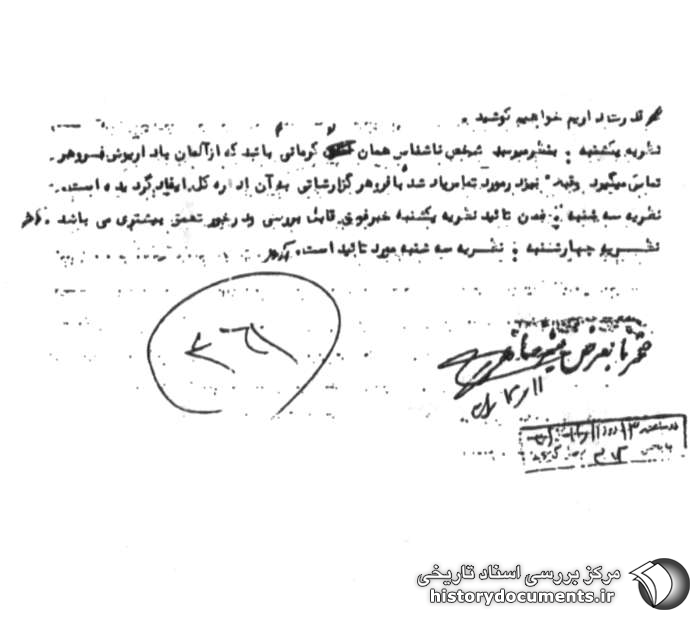 قدرت داریم خواهیم کوشید .
نظریه یکشنبه : بنظر میرسد شخص ناشناس همان کرمانی باشد که از آلمان با داریوش فروهر
تماس میگیرد و قبلا نیز در مورد تماس یاد شده با فروهر گزارشاتی به آن اداره کل ایفاد گردیده است .
نظریه سه شنبه : ضمن تائید نظریه یکشنبه خبر فوق قابل بررسی و در خور تعمق بیشتری می باشد .
نظریه چهارشنبه : نظریه سه شنبه مورد تائید است .
محرمانه بعرض میرساند
مرکز بررسی اسناد تاریخی
historydocuments.ir